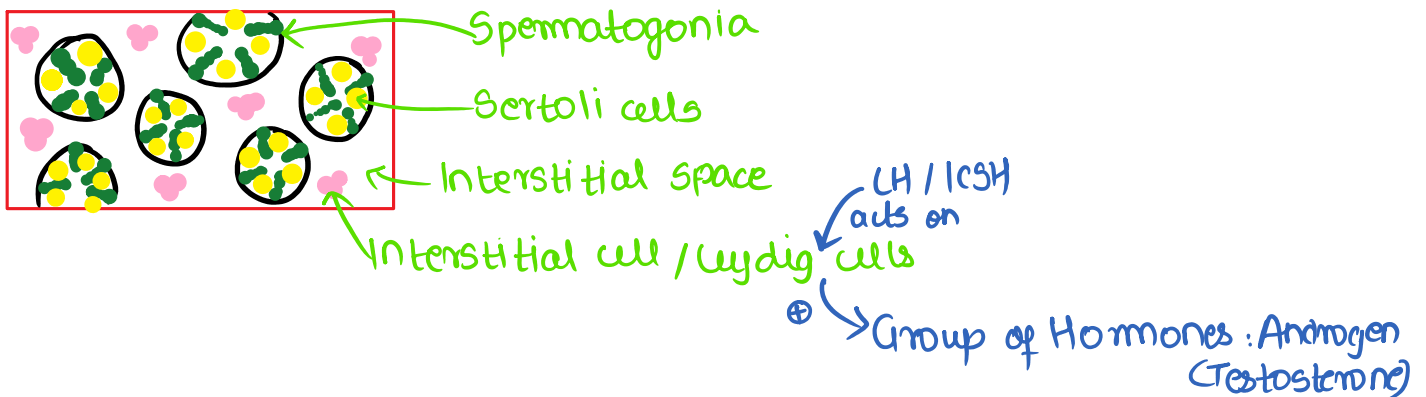 Spermatogonia
Sertoli cells
Interstitial space
LH / ICSH
acts on
Interstitial cell / Leydig cells
⊕
Group of Hormones : Androgen
(Testosterone)